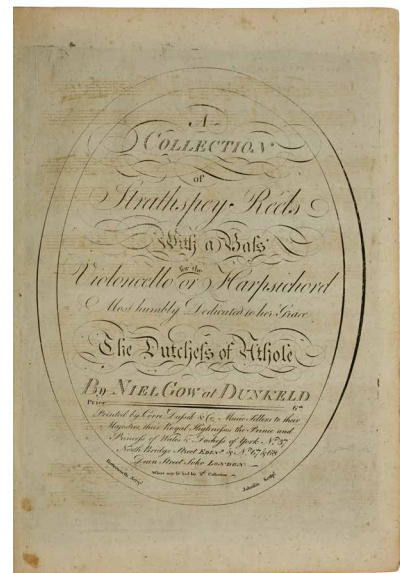 A
COLLECTION
of
Strathspey Reels
With a Bass
for the
Violoncello or Harpsichord
Most humbly Dedicated to her Grace
The Dutchess of Athole
By NIEL GOW at DUNKELD
Price 6s
Printed by Corri Dussek & Co. Music Sellers to their
Majesties, their Royal Highnesses the Prince and
Princess of Wales & Duchess of York No. 37
North Bridge Street EDINr. & No. 67 & 68
Dean Street Soho LONDON
Where may be had his 2d. Collection
Sculpt.